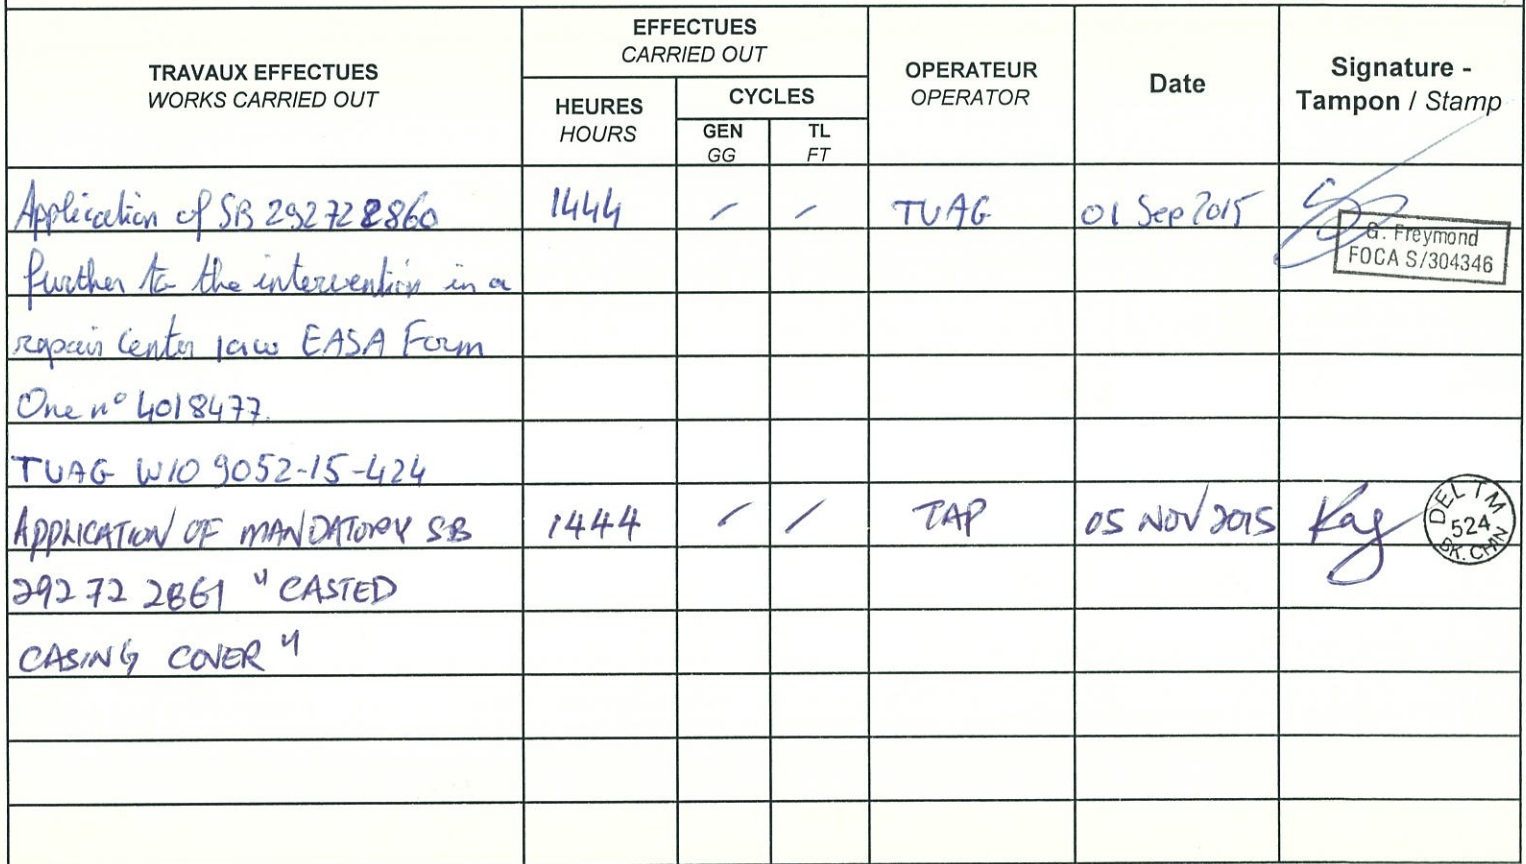 TRAVAUX EFFECTUES
WORKS CARRIED OUT
EFFECTUES
CARRIED OUT
HEURES
HOURS
CYCLES
GEN
GG
TL
FT
OPERATEUR
OPERATOR
Date
Signature -
Tampon / Stamp
Application of SB 292722860 1444 / / TUAG 01 Sep 2015
G. Freymond
FOCA S/304346
further to the intervention in a
repair center iaw EASA Form
One n° 4018477.
TUAG W/O 9052-15-424
APPLICATION OF MANDATORY SB 1444 / / TAP 05 NOV 2015 Kay
DELTM
524
BK.CHN
292 72 2861 "CASTED
CASING COVER"